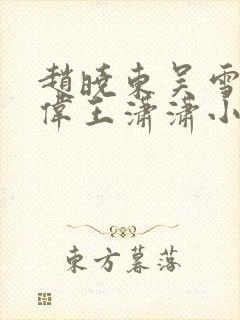 趙曉東吴雪
偉王瀟瀟小
東方暮落